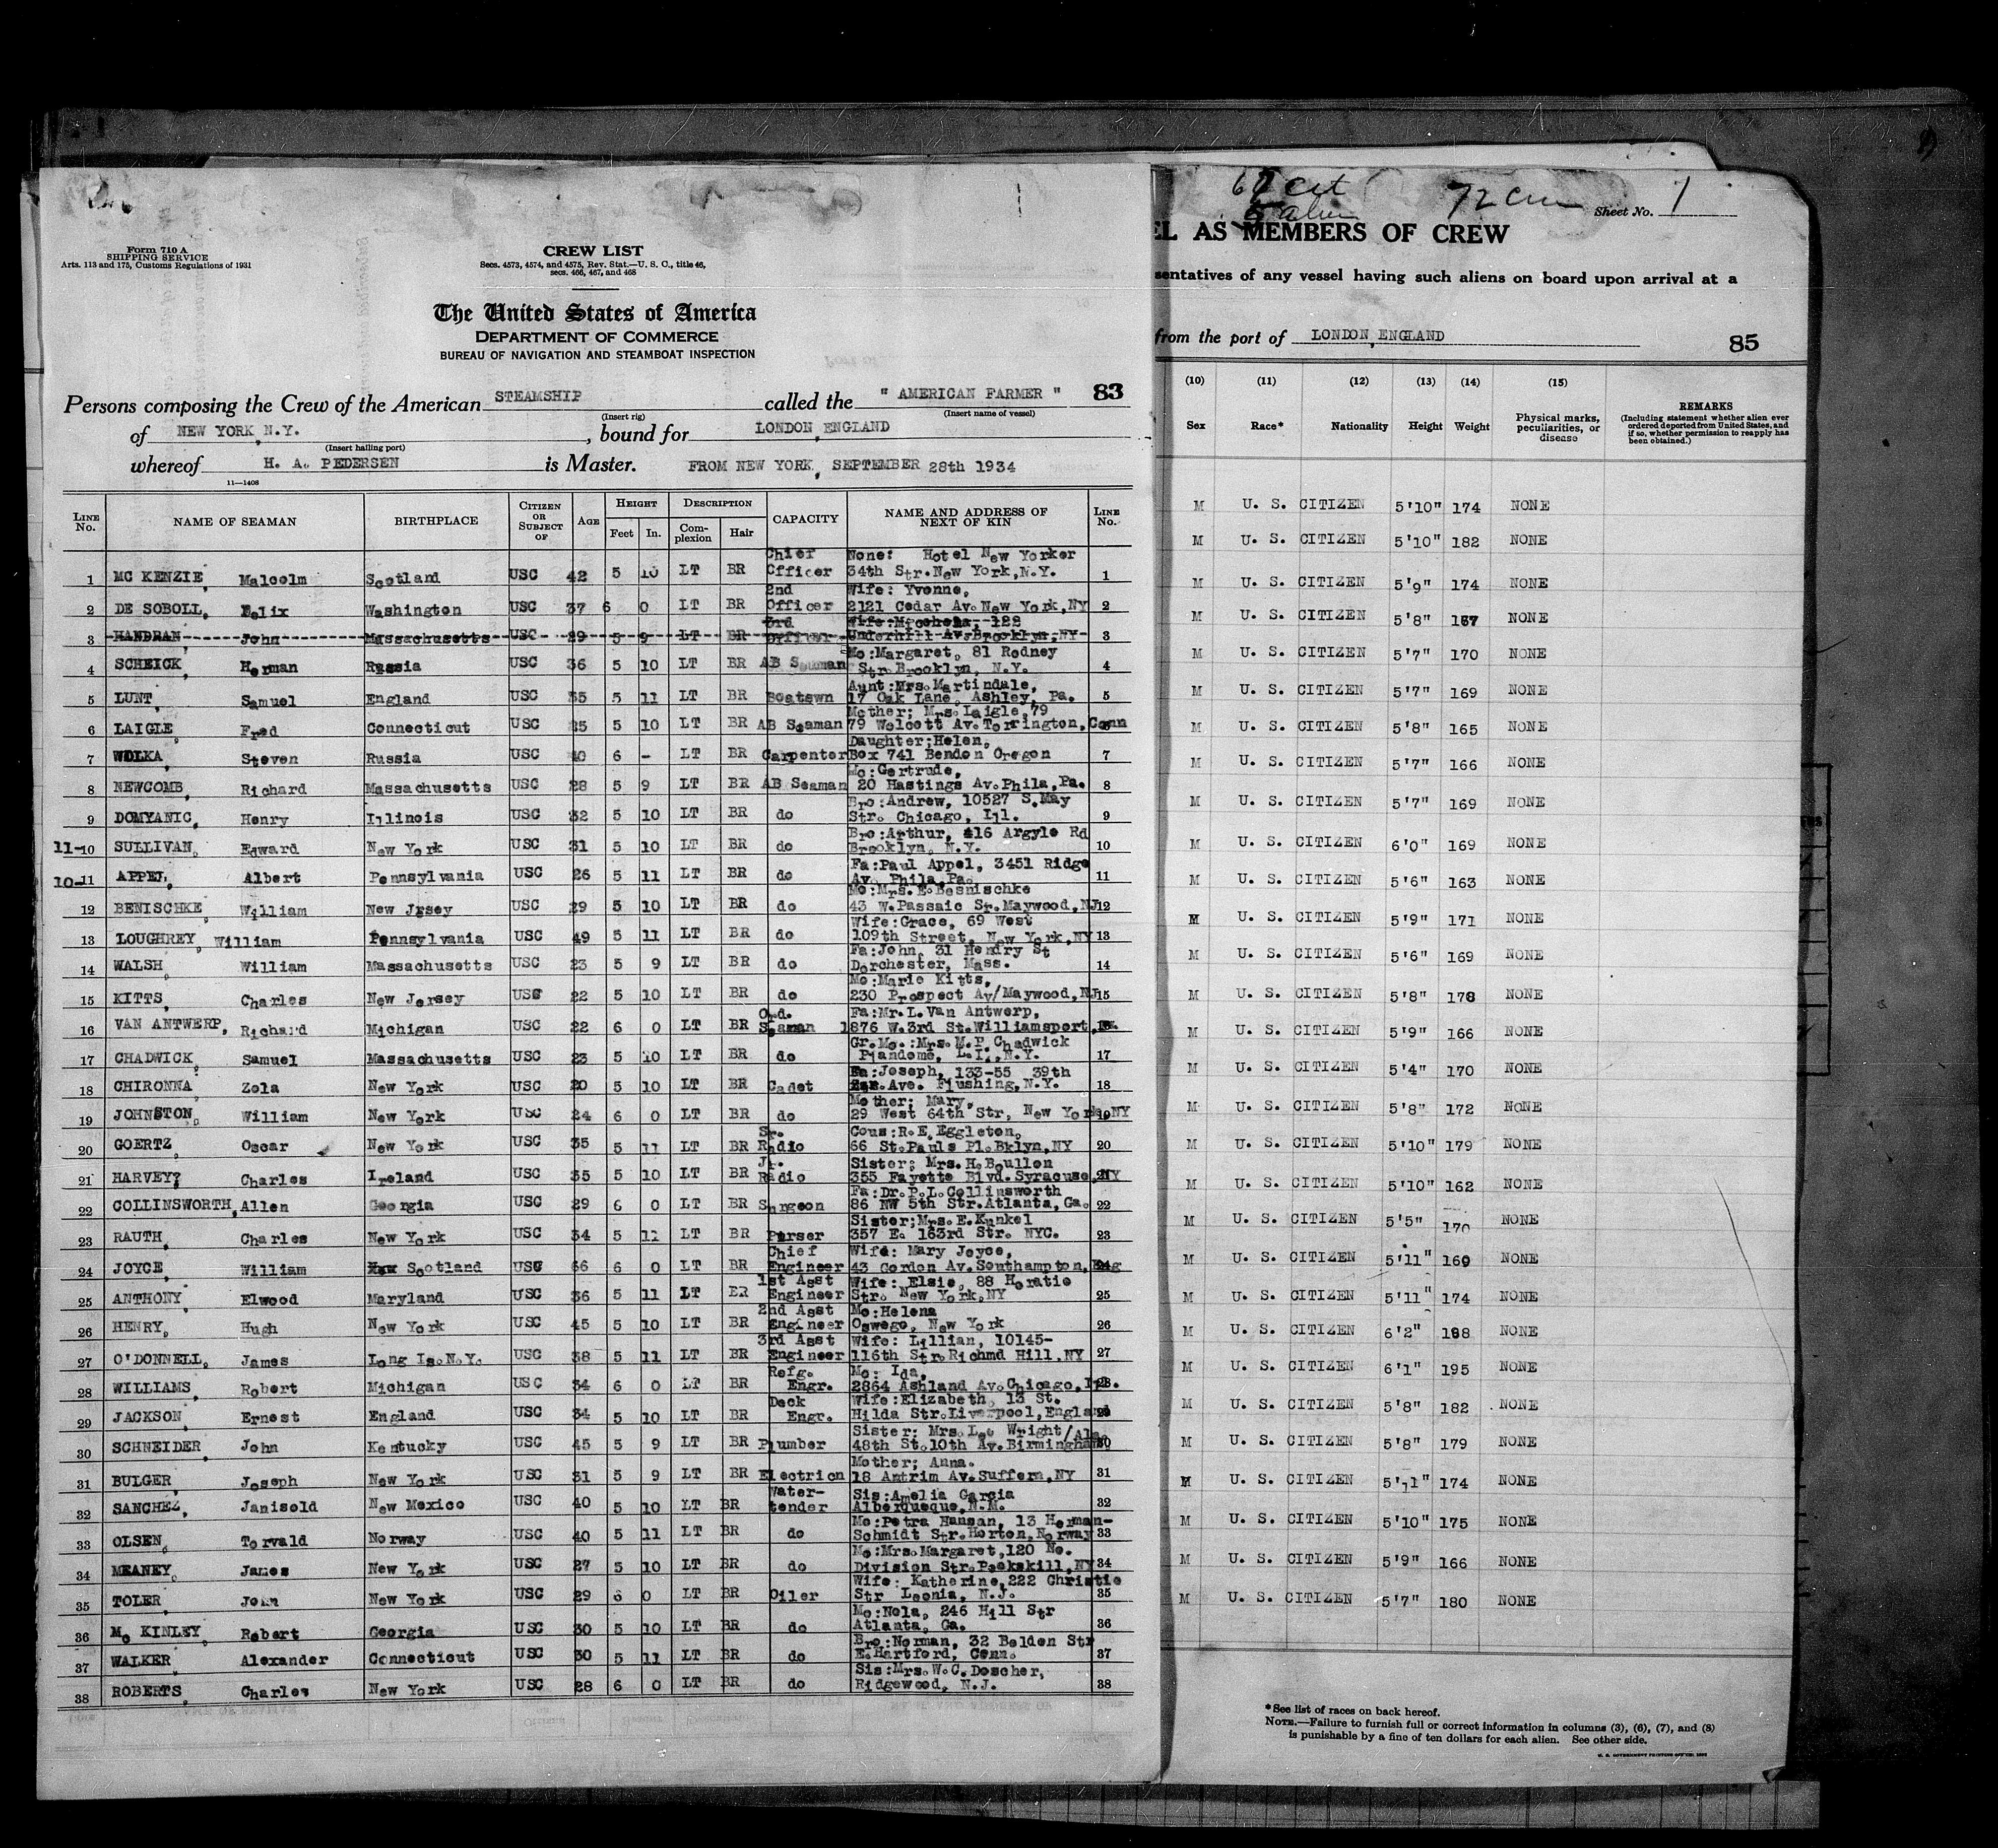 Form 710 A
SHIPPING SERVICE
Arts. 113 and 175, Customs Regulations of 1931
CREW LIST
Secs. 4573, 4574, and 4575, Rev. Stat.—U. S. C., title 46,
secs. 466, 467, and 468
The United States of America
DEPARTMENT OF COMMERCE
BUREAU OF NAVIGATION AND STEAMBOAT INSPECTION
Persons composing the Crew of the American STEAMSHIP called the " AMERICAN FARMER " 83
(Insert rig) (Insert name of vessel)
of NEW YORK, N.Y. , bound for LONDON, ENGLAND
(Insert hailing port)
whereof H. A. PEDERSEN is Master. FROM NEW YORK, SEPTEMBER 28th 1934
11—1408
LINE No. NAME OF SEAMAN BIRTHPLACE CITIZEN OR SUBJECT OF AGE HEIGHT Feet In. DESCRIPTION Complexion Hair CAPACITY NAME AND ADDRESS OF NEXT OF KIN LINE No.
1 MC KENZIE, Malcolm Scotland USC 42 5 10 LT BR Chief Officer None: Hotel New Yorker 34th Str. New York, N.Y. 1
2 DE SOBOLL, Felix Washington USC 37 6 0 LT BR 2nd Officer Wife: Yvonne, 2121 Cedar Av. New York, NY 2
3 HANDRAN John Massachusetts USC 29 5 9 LT BR 3rd Officer Underhill Av. Brooklyn, NY 3
4 SCHEICK, Herman Russia USC 36 5 10 LT BR AB Seaman Mo: Margaret, 81 Rodney Str. Brooklyn, N.Y. 4
5 LUNT, Samuel England USC 35 5 11 LT BR Boatswn Aunt: Mrs. Martindale, 17 Oak Lane, Ashley, Pa. 5
6 LAIGLE, Fred Connecticut USC 25 5 10 LT BR AB Seaman Mother; Mrs. Laigle, 79 79 Wolcott Av. Torrington, Conn
7 WOLKA, Steven Russia USC 40 6 - LT BR Carpenter Daughter; Helen, Box 741 Bendon Oregon 7
8 NEWCOMB, Richard Massachusetts USC 28 5 9 LT BR AB Seaman Mo: Gertrude, 20 Hastings Av. Phila, Pa. 8
9 DOMYANIC, Henry Illinois USC 32 5 10 LT BR do Bro: Andrew, 10527 S. May Str. Chicago, Ill. 9
11- 10 SULLIVAN, Edward New York USC 31 5 10 LT BR do Bro: Arthur, 416 Argyle Rd Brooklyn, N.Y. 10
10- 11 APPEL, Albert Pennsylvania USC 26 5 11 LT BR do Fa: Paul Appel, 3451 Ridge Av. Phila, Pa. 11
12 BENISCHKE, William New Jrsey USC 29 5 10 LT BR do Mo: Mrs. E. Besnischke 43 W. Passaic Sr. Maywood, NJ 12
13 LOUGHREY, William Pennsylvania USC 49 5 11 LT BR do Wife: Grace, 69 West 109th Street, New York, NY 13
14 WALSH, William Massachusetts USC 23 5 9 LT BR do Fa: John, 31 Hendry St Dorchester, Mass. 14
15 KITTS, Charles New Jersey USC 22 5 10 LT BR do Mo: Marie Kitts, 230 Prospect Av/Maywood, NJ 15
16 VAN ANTWERP, Richard Michigan USC 22 6 0 LT BR Ord. Seaman Fa: Mr. L. Van Antwerp, 1876 W. 3rd St. Williamsport,
17 CHADWICK, Samuel Massachusetts USC 23 5 10 LT BR do Gr. Mo.: Mrs. M.P. Chadwick Plandome, L.I., N.Y. 17
18 CHIRONNA, Zola New York USC 20 5 10 LT BR Cadet Fa: Joseph, 133-55 39th Ave. Flushing, N.Y. 18
19 JOHNSTON, William New York USC 24 6 0 LT BR do Mother: Mary, 29 West 64th Str, New York, NY
20 GOERTZ, Oscar New York USC 35 5 11 LT BR Sr. Radio Cous: R.E. Eggleton, 66 St. Pauls Pl. Bklyn, NY 20
21 HARVEY, Charles Ireland USC 35 5 10 LT BR Jr. Radio Sister; Mrs. H. Boullen 355 Fayette Blvd. Syracuse, NY
22 COLLINSWORTH, Allen Georgia USC 29 6 0 LT BR Surgeon Fa: Dr. P.L. Collinsworth 86 NW 5th Str. Atlanta, Ga. 22
23 RAUTH, Charles New York USC 34 5 11 LT BR Purser Sister; Mrs. E. Kunkel 357 E. 163rd Str. NYC. 23
24 JOYCE, William Scotland USC 66 6 0 LT BR Chief Engineer Wife: Mary Joyce, 43 Gordon Av. Southampton, Eng
25 ANTHONY, Elwood Maryland USC 36 5 11 LT BR 1st Asst Engineer Wife: Elsie, 88 Horatio Str. New York, NY 25
26 HENRY, Hugh New York USC 45 5 10 LT BR 2nd Asst Engineer Mo: Helena Oswego, New York 26
27 O'DONNELL, James Long Is. N.Y. USC 38 5 11 LT BR 3rd Asst Engineer Wife: Lillian, 10145- 116th Str. Richmd Hill, NY 27
28 WILLIAMS, Robert Michigan USC 34 6 0 LT BR Refg. Engr. Mo: Ida, 2864 Ashland Av. Chicago, Ill.
29 JACKSON, Ernest England USC 34 5 10 LT BR Deck Engr. Wife: Elizabeth, 13 St. Hilda Str. Liverpool, England
30 SCHNEIDER, John Kentucky USC 45 5 9 LT BR Plumber Sister: Mrs. Leo Wright/Ala. 48th St. 10th Av. Birmingham
31 BULGER, Joseph New York USC 31 5 9 LT BR Electricn Mother; Anna. 18 Antrim Av. Suffern, NY 31
32 SANCHEZ, Janisold New Mexico USC 40 5 10 LT BR Water-tender Sis: Amelia Garcia Alberqueque, N.M. 32
33 OLSEN, Torvald Norway USC 40 5 11 LT BR do Mo: Petra Hansan, 13 Herman- Schmidt Str. Horton, Norway 33
34 MEANEY, James New York USC 27 5 10 LT BR do Mo: Mrs. Margaret, 120 No. Division Str. Peekskill, NY 34
35 TOLER, John New York USC 29 6 0 LT BR Oiler Wife: Katherine, 222 Christie Str Leonia, N.J. 35
36 Mc KINLEY, Robert Georgia USC 30 5 10 LT BR do Mo: Nola, 246 Hill Str Atlanta, Ga. 36
37 WALKER, Alexander Connecticut USC 30 5 11 LT BR do Bro: Norman, 32 Belden Str E. Hartford, Conn. 37
38 ROBERTS, Charles New York USC 28 6 0 LT BR do Sis: Mrs. W.C. Doscher, Ridgewood, N.J. 38
72 Sheet No. 1
EL AS MEMBERS OF CREW
sentatives of any vessel having such aliens on board upon arrival at a
from the port of LONDON, ENGLAND 85
(10) (11) (12) (13) (14) (15)
Sex Race* Nationality Height Weight Physical marks, peculiarities, or disease REMARKS (Including statement whether alien ever ordered deported from United States, and if so, whether permission to reapply has been obtained.)
M U. S. CITIZEN 5'10" 174 NONE
M U. S. CITIZEN 5'10" 182 NONE
M U. S. CITIZEN 5'9" 174 NONE
M U. S. CITIZEN 5'8" 167 NONE
M U. S. CITIZEN 5'7" 170 NONE
M U. S. CITIZEN 5'7" 169 NONE
M U. S. CITIZEN 5'8" 165 NONE
M U. S. CITIZEN 5'7" 166 NONE
M U. S. CITIZEN 5'7" 169 NONE
M U. S. CITIZEN 6'0" 169 NONE
M U. S. CITIZEN 5'6" 163 NONE
M U. S. CITIZEN 5'9" 171 NONE
M U. S. CITIZEN 5'6" 169 NONE
M U. S. CITIZEN 5'8" 178 NONE
M U. S. CITIZEN 5'9" 166 NONE
M U. S. CITIZEN 5'4" 170 NONE
M U. S. CITIZEN 5'8" 172 NONE
M U. S. CITIZEN 5'10" 179 NONE
M U. S. CITIZEN 5'10" 162 NONE
M U. S. CITIZEN 5'5" 170 NONE
M U. S. CITIZEN 5'11" 160 NONE
M U. S. CITIZEN 5'11" 174 NONE
M U. S. CITIZEN 6'2" 188 NONE
M U. S. CITIZEN 6'1" 195 NONE
M U. S. CITIZEN 5'8" 182 NONE
M U. S. CITIZEN 5'8" 179 NONE
M U. S. CITIZEN 5'11" 174 NONE
M U. S. CITIZEN 5'10" 175 NONE
M U. S. CITIZEN 5'9" 166 NONE
M U. S. CITIZEN 5'7" 180 NONE
*See list of races on back hereof.
NOTE.—Failure to furnish full or correct information in columns (3), (6), (7), and (8)
is punishable by a fine of ten dollars for each alien. See other side.